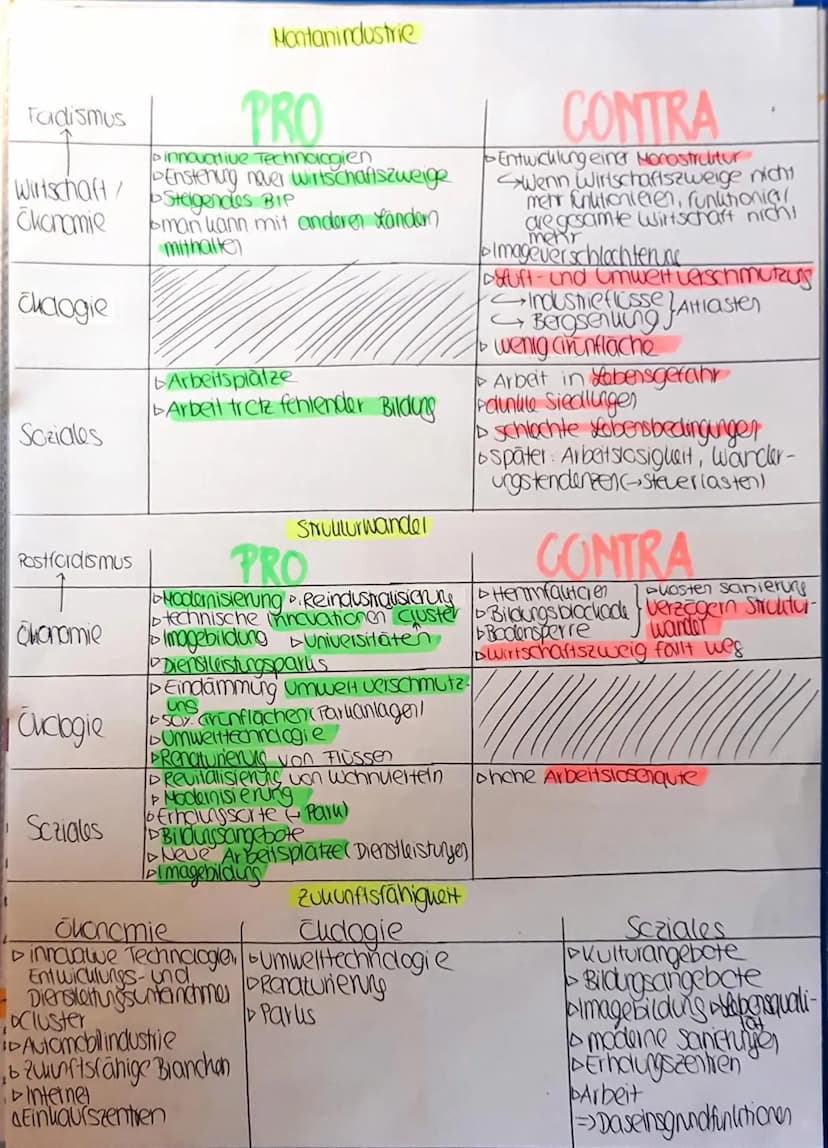 Montanindustrie
Fordismus
PRO
CONTRA
Wirtschaft /
Ökonomie
▹ innovative Technologien
▹ Enstehung neuer Wirtschaftszweige
▹ Steigendes BIP
▹ man kann mit anderen Ländern
mithalten
▹ Entwicklung einer Monostruktur
↳ Wenn Wirtschaftszweige nicht
mehr funktionieren, funktioniert
die gesamte Wirtschaft nicht
mehr
▹ Imageverschlechterung
Ökologie
▹ Luft- und Umweltverschmutzung
↳ Industrieflüsse } Altlasten
↳ Bergsenkung
▹ wenig Grünfläche
Soziales
▹ Arbeitsplätze
▹ Arbeit trotz fehlender Bildung
▹ Arbeit in Lebensgefahr
▹ dunkle Siedlungen
▹ schlechte Lebensbedingungen
▹ später: Arbeitslosigkeit, Wander-
ungstendenzen (→ Steuerlasten)
Strukturwandel
Postfordismus
PRO
CONTRA
Ökonomie
▹ Modernisierung ▹ Reindustrialisierung
▹ technische Innovationen Cluster
▹ Imagebildung ▹ Universitäten
▹ Dienstleistungsparks
▹ Hemmfaktoren
▹ Bildungsblockade
▹ Bodensperre
▹ Kosten Sanierung
verzögern Struktur-
wandel
▹ Wirtschaftszweig fällt weg
Ökologie
▹ Eindämmung Umweltverschmutz-
ung
▹ 50% Grünflächen (Parkanlagen)
▹ Umwelttechnologie
▹ Renaturierung von Flüssen
Soziales
▹ Revitalisierung von Wohnvierteln
▹ Modernisierung
▹ Erholungsorte (→ Park)
▹ Bildungsangebote
▹ Neue Arbeitsplätze (Dienstleistungen)
▹ Imagebildung
▹ hohe Arbeitslosenqute
Zukunftsfähigkeit
Ökonomie
▹ innovative Technologien,
Entwicklungs- und
Dienstleitungsunternehmen
▹ Cluster
▹ Automobilindustrie
▹ Zukunftsfähige Branchen
▹ Internet
▹ Einkaufszentren
Ökologie
▹ Umwelttechnologie
▹ Renaturierung
▹ Parks
Soziales
▹ Kulturangebote
▹ Bildungsangebote
▹ Imagebildung ▹ Lebensquali-
tät
▹ moderne Sanierungen
▹ Erholungszentren
▹ Arbeit
⇒ Daseinsgrundfunktionen